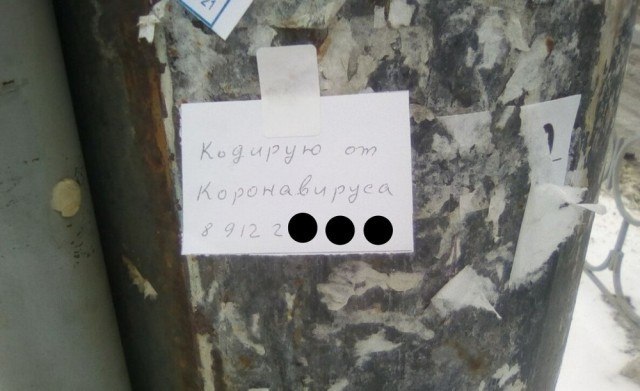 Кодирую от
Коронавируса
8 912 2